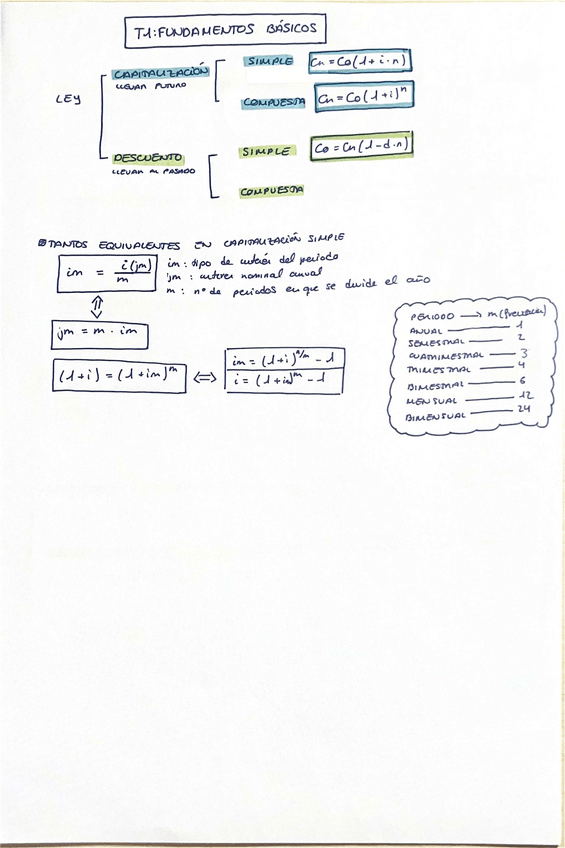 T1: FUNDAMENTOS BÁSICOS
LEY
CAPITALIZACIÓN
LLEVAR FUTURO
SIMPLE Cn = Co(1+i·n)
COMPUESTA Cn = Co(1+i)^n
DESCUENTO
LLEVAR AL PASADO
SIMPLE Co = Cn(1-d·n)
COMPUESTA
TANTOS EQUIVALENTES EN CAPITALIZACIÓN SIMPLE
im = i(jm)/m
im: tipo de interés del periodo
jm: interes nominal anual
m: nº de periodos en que se divide el año
⇕
jm = m · im
(1+i) = (1+im)^m ⇔ im = (1+i)^1/m - 1
i = (1+im)^m - 1
PERIODO → m (frecuencia)
ANUAL — 1
SEMESTRAL — 2
CUATRIMESTRAL — 3
TRIMESTRAL — 4
BIMESTRAL — 6
MENSUAL — 12
BIMENSUAL — 24